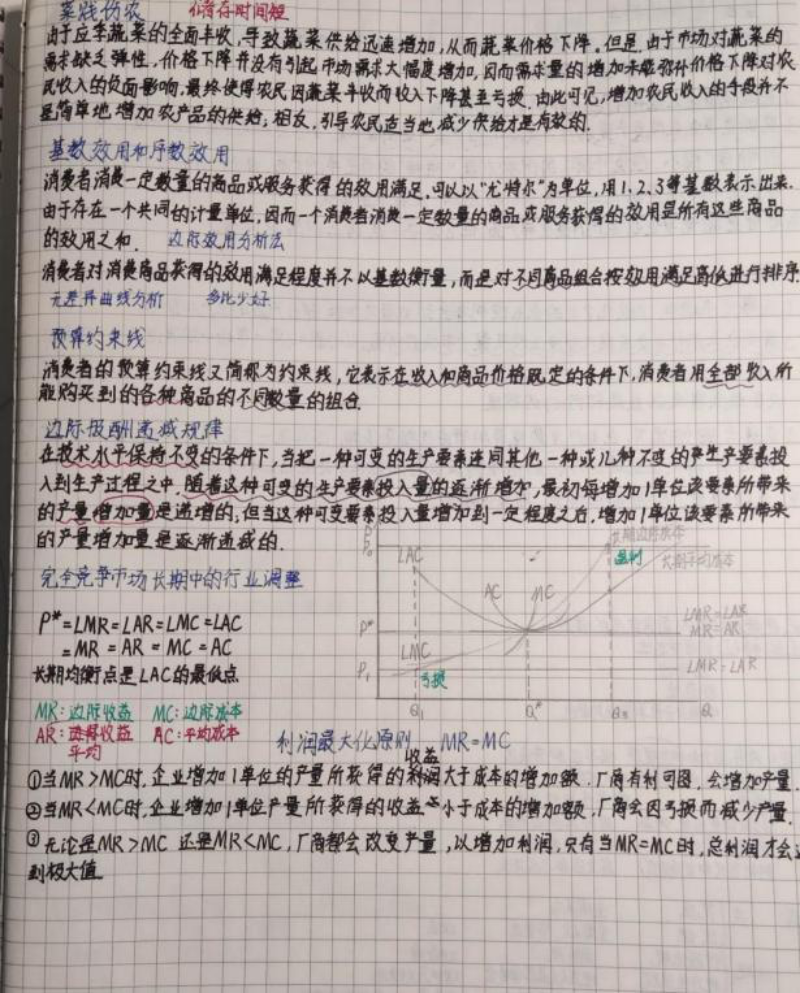 菜贱伤农 储存时间短
由于应季蔬菜的全面丰收,导致蔬菜供给迅速增加,从而蔬菜价格下降。但是,由于市场对蔬菜的
需求缺乏弹性,价格下降并没有引起市场需求大幅度增加,因而需求量的增加未能弥补价格下降对农
民收入的负面影响,最终使得农民因蔬菜丰收而收入下降甚至亏损。由此可见,增加农民收入的手段并不
是简单地增加农产品的供给;相反,引导农民适当地减少供给才是有效的.
基数效用和序数效用
消费者消费一定数量的商品或服务获得的效用满足,可以以"尤特尔"为单位,用1、2、3等基数表示出来.
由于存在一个共同的计量单位,因而一个消费者消费一定数量的商品或服务获得的效用是所有这些商品
的效用之和. 边际效用分析法
消费者对消费商品获得的效用满足程度并不以基数衡量,而是对不同商品组合按效用满足高低进行排序.
无差异曲线分析 多比少好
预算约束线
消费者的预算约束线又简称为约束线,它表示在收入和商品价格既定的条件下,消费者用全部收入所
能购买到的各种商品的不同数量的组合.
边际报酬递减规律
在技术水平保持不变的条件下,当把一种可变的生产要素连同其他一种或几种不变的产生产要素投
入到生产过程之中,随着这种可变的生产要素投入量的逐渐增加,最初每增加1单位该要素所带来
的产量增加量是递增的,但当这种可变要素投入量增加到一定程度之后,增加1单位该要素所带来
的产量增加量是逐渐递减的.
完全竞争市场长期中的行业调整
P*=LMR=LAR=LMC=LAC
=MR=AR=MC=AC
长期均衡点是LAC的最低点
MR:边际收益 MC:边际成本
AR:收益 AC:平均成本
平均
LAC
盈利
长期平均成本
AC MC
P*
LMR=LAR
MR=AR
LMC
P₁
亏损
LMR=LAR
Q₁ Q* Q
利润最大化原则 MR=MC
收益
①当MR>MC时,企业增加1单位的产量所获得的利润大于成本的增加额,厂商有利可图,会增加产量.
②当MR<MC时,企业增加1单位产量所获得的收益小于成本的增加额,厂商会因亏损而减少产量.
③无论是MR>MC 还是MR<MC,厂商都会改变产量,以增加利润,只有当MR=MC时,总利润才会
到极大值